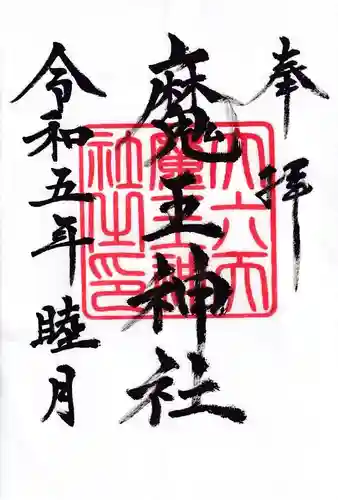 奉拝
魔王神社
令和五年 睦月
第六天
魔王神
社之印